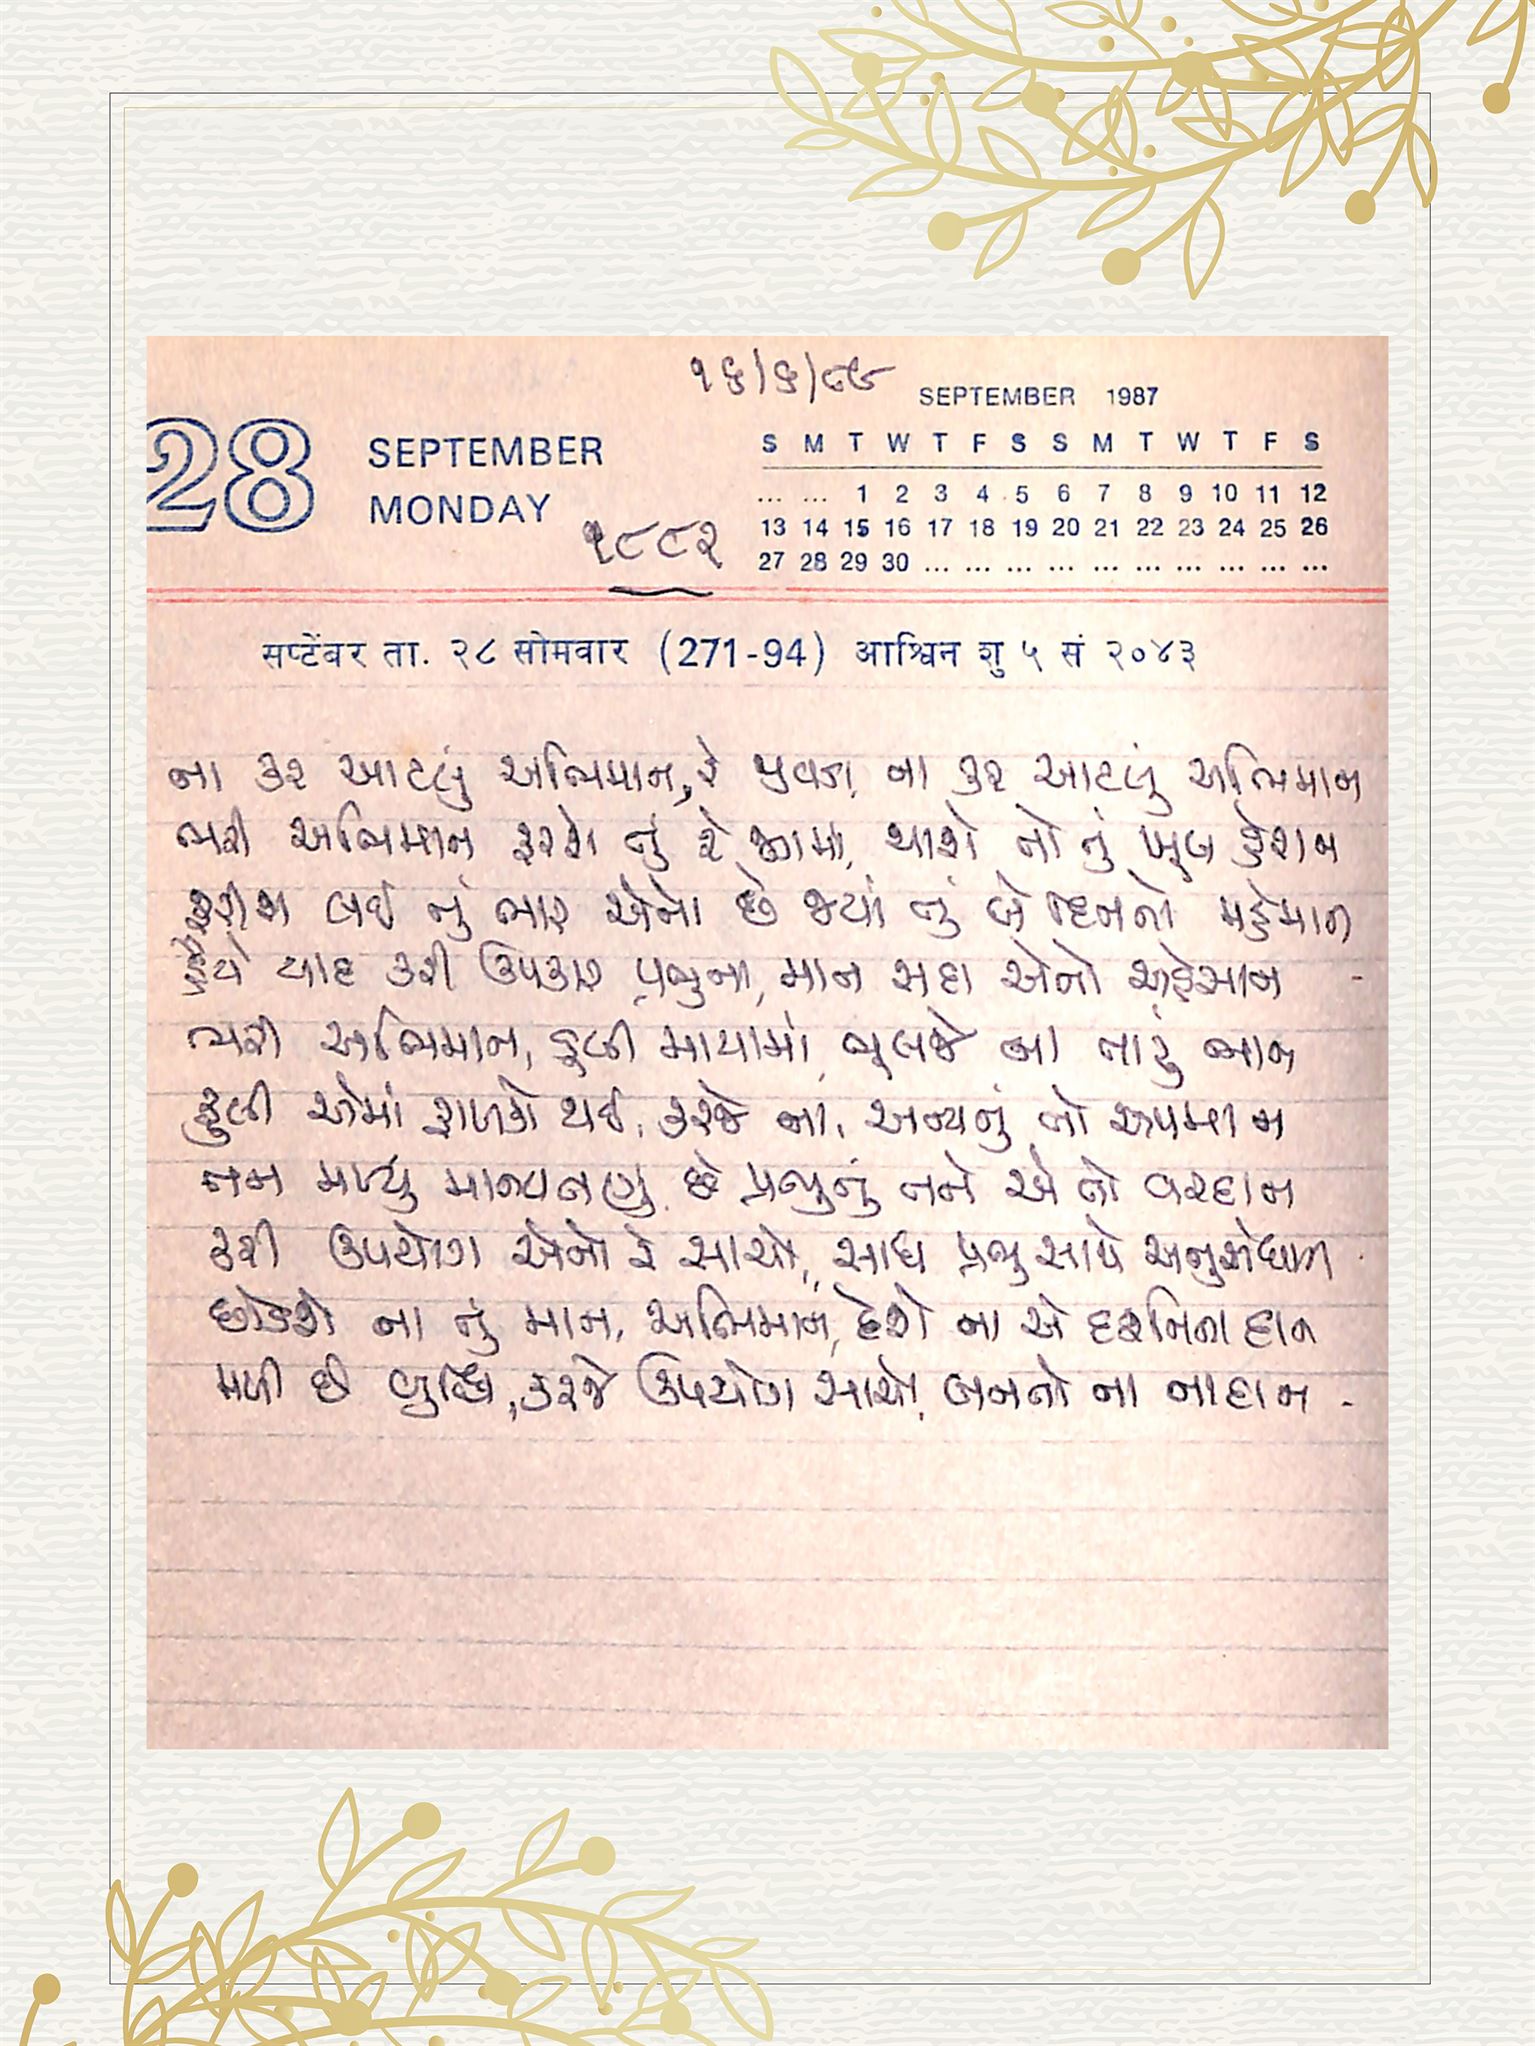 ૧૬/૬/૮૯
SEPTEMBER 1987
28 SEPTEMBER
MONDAY
૧૮૮૨
S M T W T F S S M T W T F S
... ... 1 2 3 4 5 6 7 8 9 10 11 12
13 14 15 16 17 18 19 20 21 22 23 24 25 26
27 28 29 30 ... ... ... ... ... ... ... ... ... ...
सप्टेंबर ता. २८ सोमवार (271-94) आश्विन शु ५ सं २०४३
ના કર આટલું અભિમાન, રે માનવ, ના કર આટલું અભિમાન
ભરી અભિમાન ફરશે તું રે જગમાં, થાશે તો તું ખૂબ હેરાન
ફરીશ લઈ તું ભાર એનો છે જ્યાં તું બે દિનનો મહેમાન
હૈયે યાદ કરી ઉપકાર પ્રભુના, માન સદા એનો અહેસાન -
ભરી અભિમાન, ડૂબી માયામાં, ભૂલજે ના તારું ભાન
ફુલી એમાં ફાળકો થઈ, કરજે ના, અન્યનું તો અપમાન
તન મળ્યું માનવતણું છે પ્રભુનું તને એ તો વરદાન
કરી ઉપયોગ એનો રે સાચો, સાધ પ્રભુ સાથે અનુસંધાન
છોડશે ના તું માન, અભિમાન, દેશે ના એ દરશનના દાન
મળી છે બુદ્ધિ, કરજે ઉપયોગ સાચો, બનતો ના નાદાન -